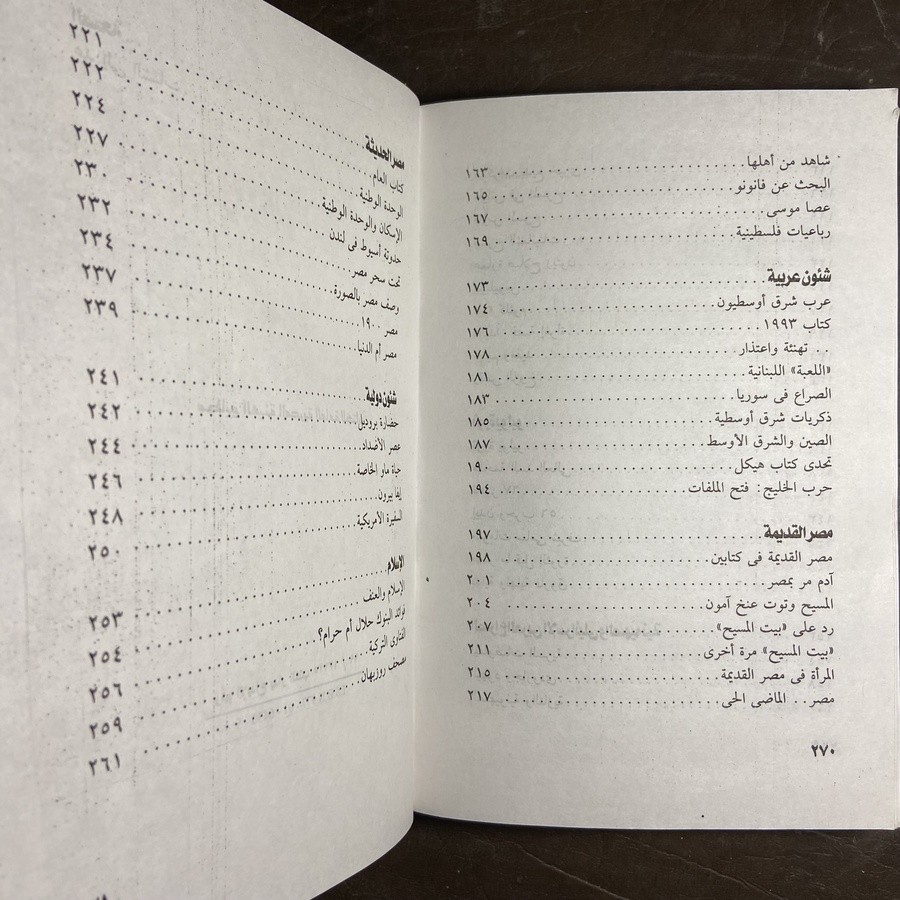 شاهد من أهلها ١٦٣
البحث عن فانونو ١٦٥
عصا موسى ١٦٧
رباعيات فلسطينية ١٦٩
شئون عربية ١٧٣
عرب شرق أوسطيون ١٧٤
كتاب ١٩٩٣ ١٧٦
.. تهنئة واعتذار ١٧٨
«اللعبة» اللبنانية ١٨١
الصراع فى سوريا ١٨٣
ذكريات شرق أوسطية ١٨٥
الصين والشرق الأوسط ١٨٧
تحدى كتاب هيكل ١٩٠
حرب الخليج: فتح الملفات ١٩٤
مصر القديمة ١٩٧
مصر القديمة فى كتابين ١٩٨
آدم مر بمصر ٢٠١
المسيح وتوت عنخ آمون ٢٠٤
رد على «بيت المسيح» ٢٠٧
«بيت المسيح» مرة أخرى ٢١١
المرأة فى مصر القديمة ٢١٥
مصر.. الماضى الحى ٢١٧
٢٧٠
مصر الحديثة ٢٢١
كتاب العام ٢٢٢
الوحدة الوطنية ٢٢٤
الإسكان والوحدة الوطنية ٢٢٧
حدوتة أسيوط فى لندن ٢٣٠
تحت سحر مصر ٢٣٢
وصف مصر بالصورة ٢٣٤
مصر ١٩٠٠ ٢٣٧
مصر أم الدنيا ٢٣٩
شئون دولية ٢٤١
حضارة بروديل ٢٤٢
عصر الأضداد ٢٤٤
حياة ماو الخاصة ٢٤٦
إيفا بيرون ٢٤٨
السفيرة الأمريكية ٢٥٠
الإسلام ٢٥٣
الإسلام والعنف ٢٥٤
فوائد البنوك حلال أم حرام؟ ٢٥٦
الفتاوى التركية ٢٥٩
مصحف روزبهان ٢٦١